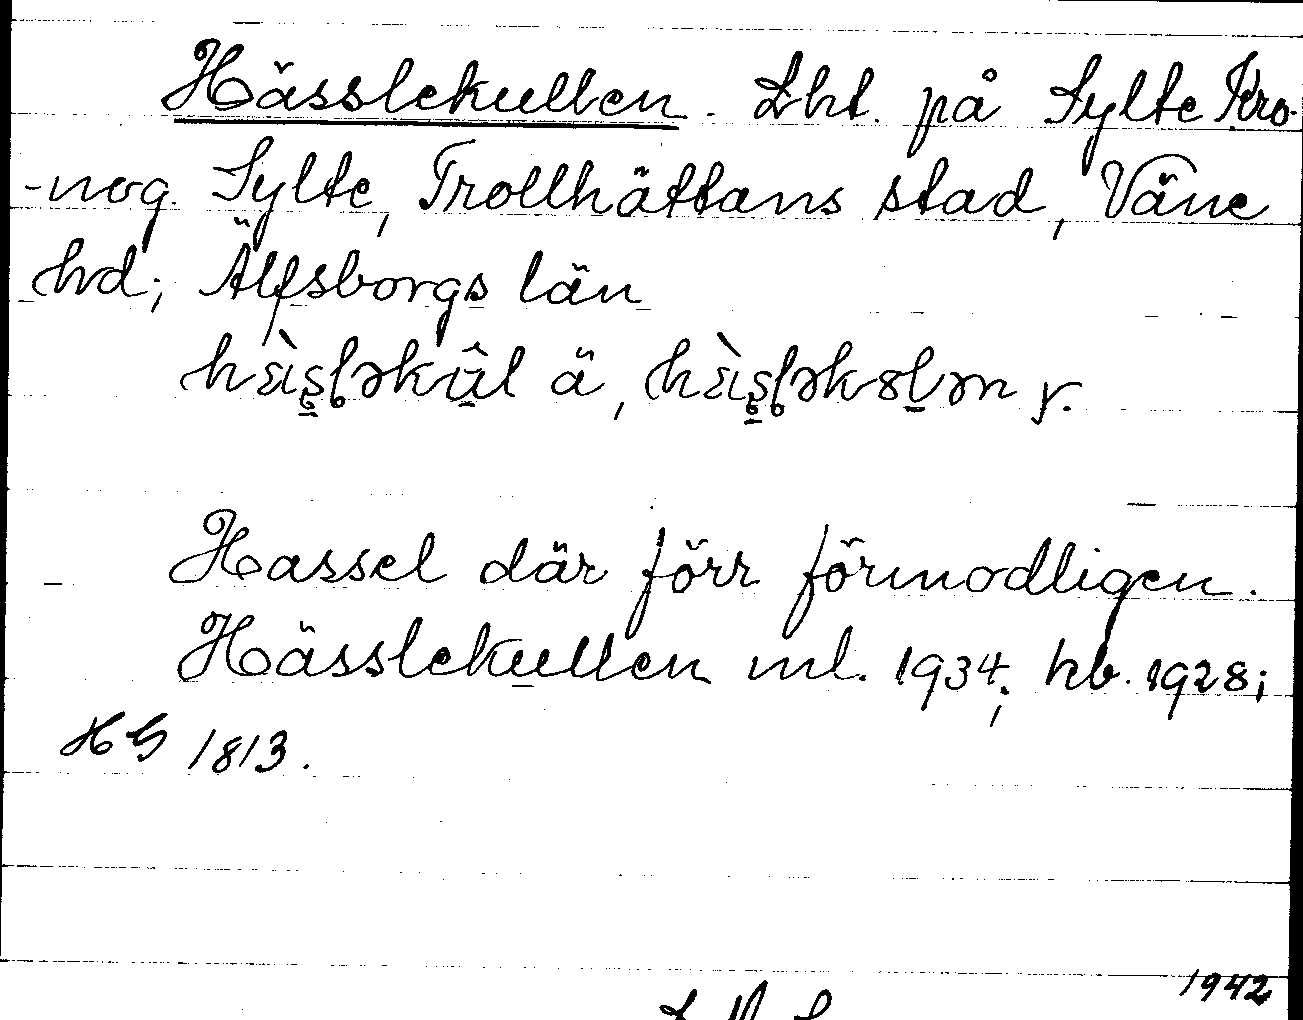 Hässlekullen. Lht. på Sylte Kro-
-nog. Sylte, Trollhättans stad, Väne
hd; Älfsborgs län
Hassel där förr förmodligen.
Hässlekullen ml. 1934; hb. 1928;
HG 1813.
1942